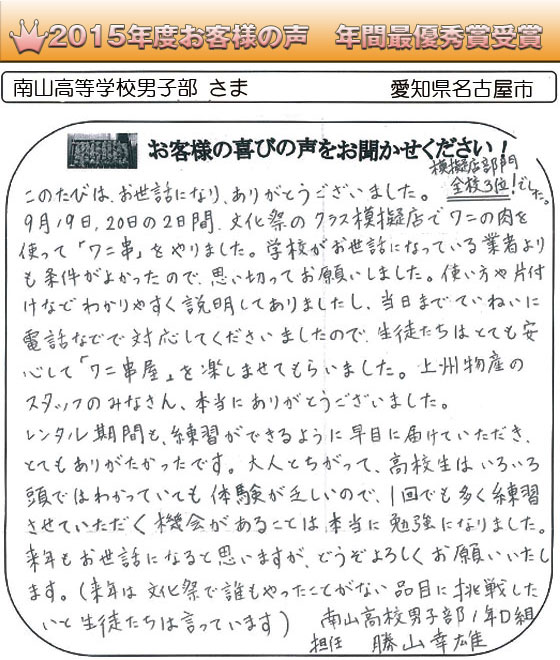 2015年度お客様の声　年間最優秀賞受賞
南山高等学校男子部 さま　愛知県名古屋市
お客様の喜びの声をお聞かせください！
模擬店部門
全校3位！でした。
このたびは、お世話になり、ありがとうございました。
9月19日,20日の2日間、文化祭のクラス模擬店でワニの肉を
使って「ワニ串」をやりました。学校がお世話になっている業者より
も条件がよかったので、思い切ってお願いしました。使い方や片付
けなどわかりやすく説明してありましたし、当日までていねいに
電話などで対応してくださいましたので、生徒たちはとても安
心して「ワニ串屋」を楽しませてもらいました。上州物産の
スタッフのみなさん、本当にありがとうございました。
レンタル期間も、練習ができるように早目に届けていただき、
とてもありがたかったです。大人とちがって、高校生はいろいろ
頭ではわかっていても体験が乏しいので、1回でも多く練習
させていただく機会があることは本当に勉強になりました。
来年もお世話になると思いますが、どうぞよろしくお願いいたし
ます。（来年は文化祭で誰もやったことがない品目に挑戦した
いと生徒たちは言っています）
南山高校男子部1年D組
担任　勝山幸雄